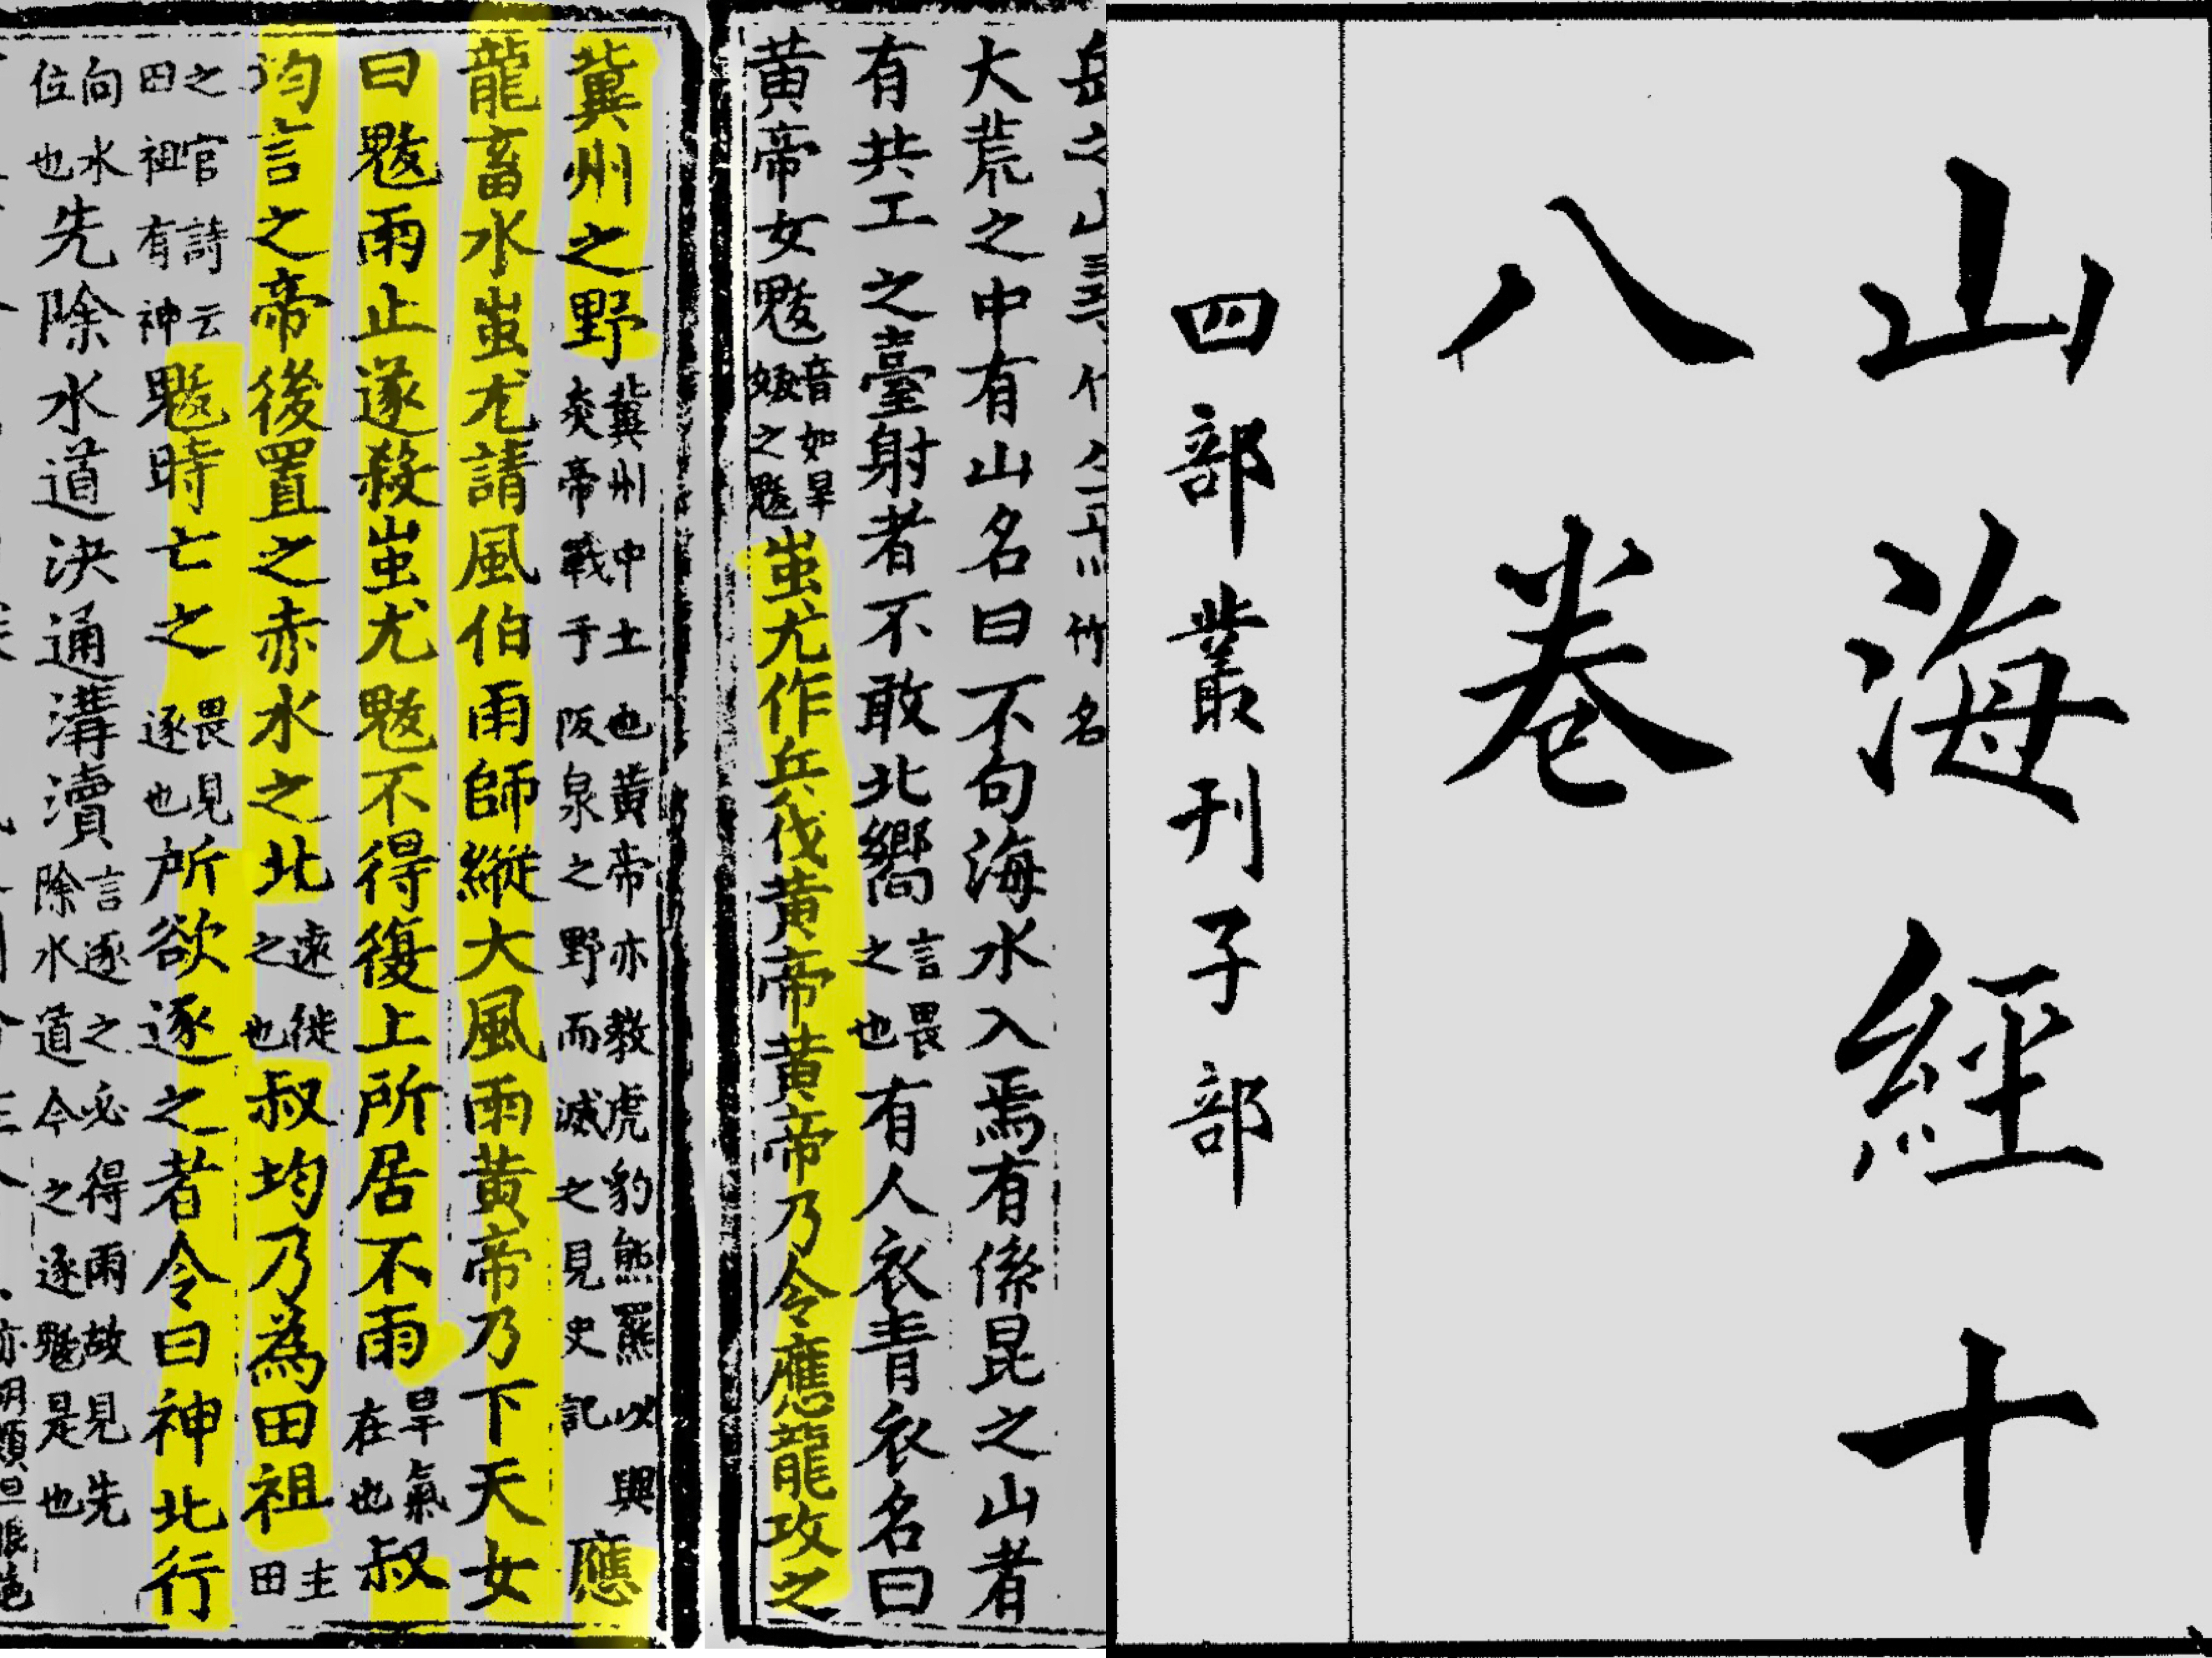 山海經十
八卷
四部叢刊子部
大荒之中有山名曰不句海水入焉有係昆之山者
有共工之臺射者不敢北嚮言畏之也有人衣青衣名曰
黃帝女魃音如旱妭之魃蚩尤作兵伐黃帝黃帝乃令應龍攻之
冀州之野冀州中土也黃帝亦教虎豹熊羆以與炎帝戰于阪泉之野而滅之見史記應
龍畜水蚩尤請風伯雨師縱大風雨黃帝乃下天女
曰魃雨止遂殺蚩尤魃不得復上所居不雨旱氣在也叔
均言之帝後置之赤水之北遠徙之也叔均乃為田祖主田
之官詩云田祖有神魃時亡之畏見逐也所欲逐之者令曰神北行
向水位也先除水道決通溝瀆言逐之必得雨故見先除水道今之逐魃是也